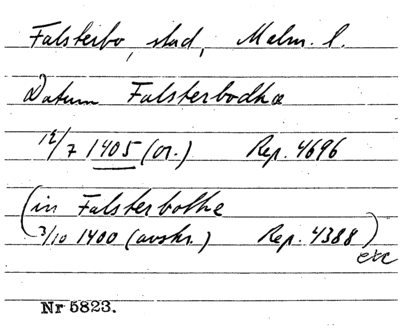 Falsterbo, stad, Malm. l.
Datum Falsterbodhæ
12/7 1405 (or.) Rep. 4696
(in Falsterbothe
3/10 1400 (avskr.) Rep. 4388)
exc
Nr 5823.